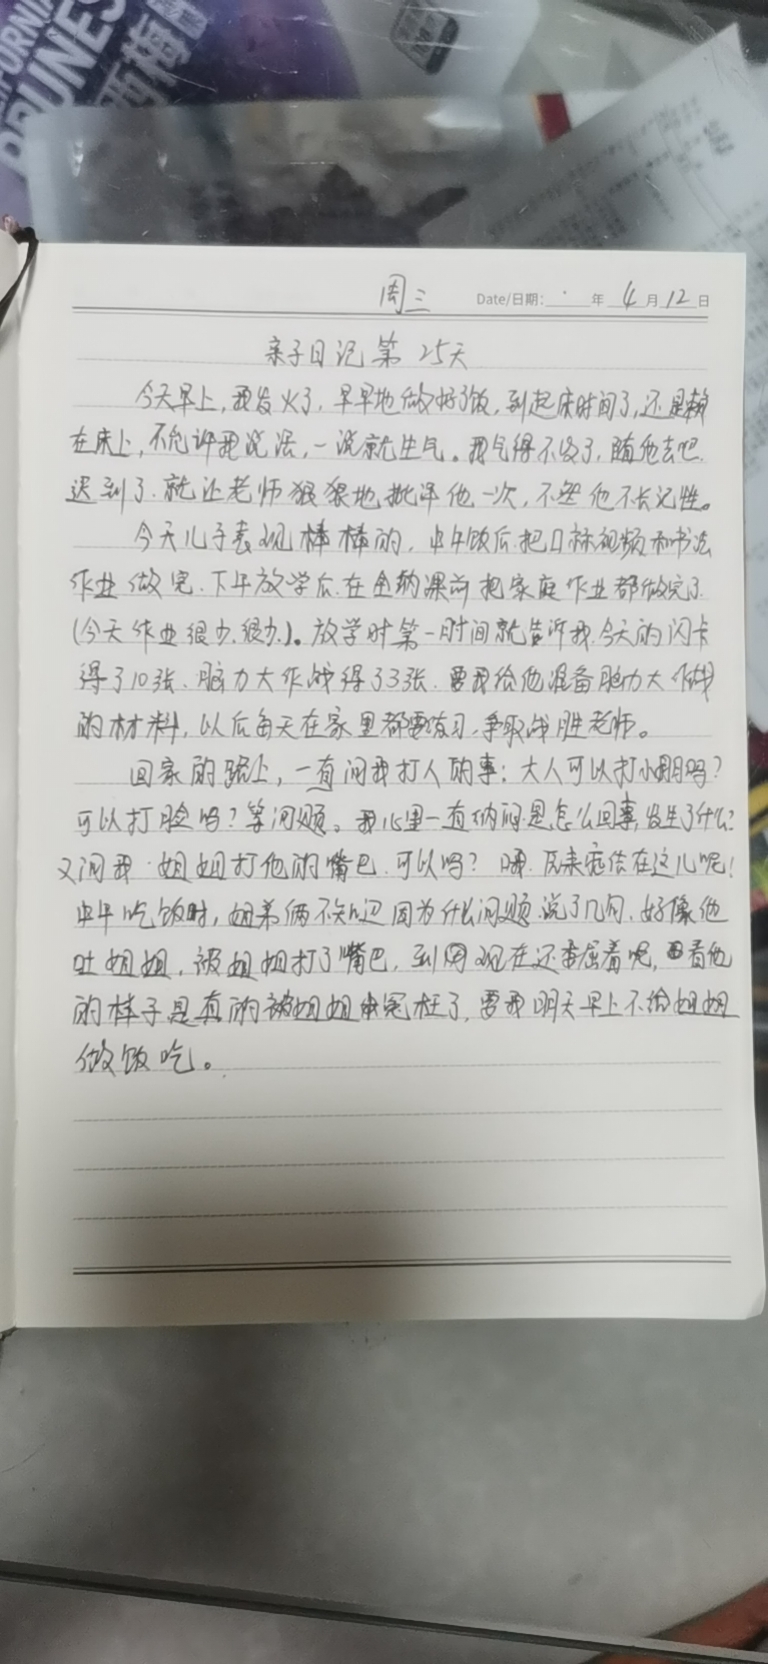 CALIFORNIA
PRUNES
西梅
周三 Date/日期: 年 4 月 12 日
亲子日记第 25天
今天早上,我发火了,早早地做好了饭,到起床时间了,还是赖
在床上,不允许我说话,一说就生气。我气得不行了,随他去吧
迟到了,就让老师狠狠地批评他一次,不然他不长记性。
今天儿子表现棒棒的,中午饭后把口标视频和书法
作业做完,下午放学后在金纳课前把家庭作业都做完了
(今天作业很少,很少)。放学时第一时间就告诉我,今天的闪卡
得了10张、脑力大作战得了33张,要我给他准备脑力大作战
的材料,以后每天在家里都要练习,争取战胜老师。
回家的路上,一直问我打人的事:大人可以打小朋友吗?
可以打脸吗?等问题。我心里一直纳闷是怎么回事,发生了什么?
又问我,姐姐打他的嘴巴,可以吗?哦,原来症结在这儿呢!
中午吃饭时,姐弟俩不知道因为什么问题说了几句,好像他
吐姐姐,被姐姐打了嘴巴,到现在还委屈着呢,看他
的样子是真的被姐姐冤枉了,要我明天早上不给姐姐
做饭吃。